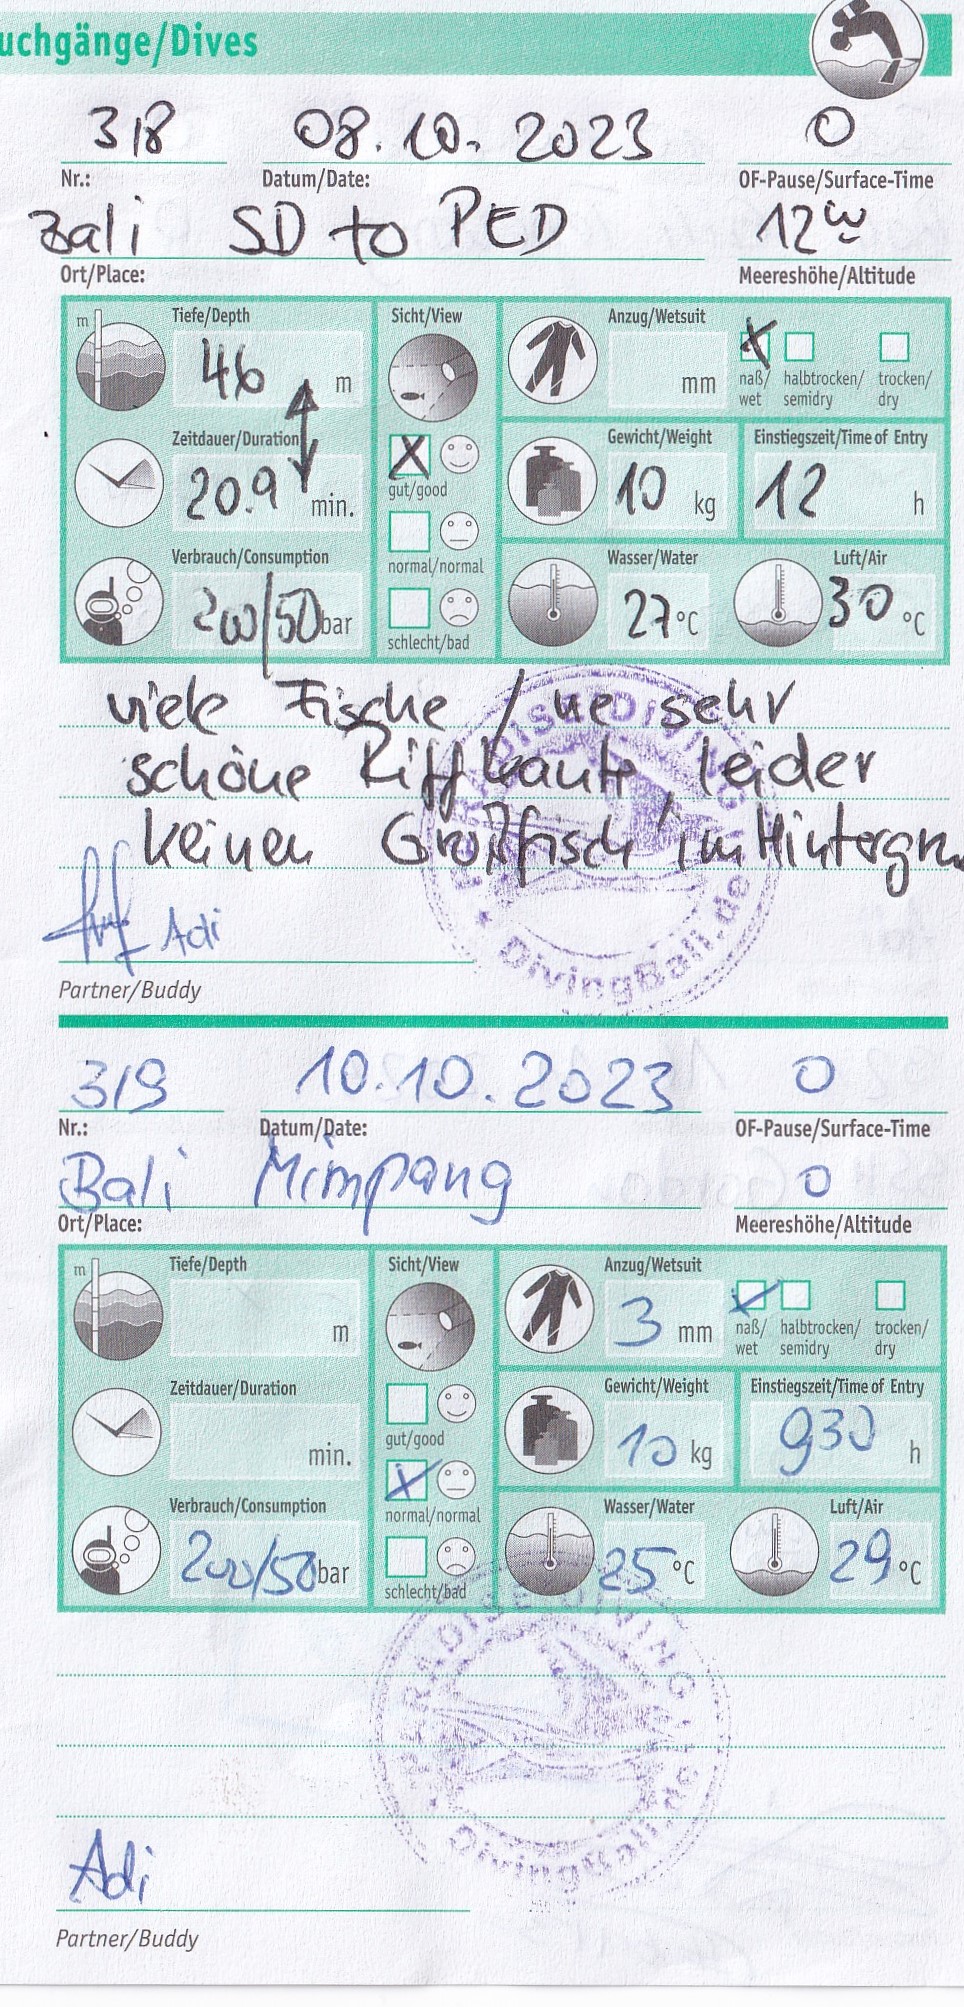 uchgänge/Dives
318 08.10.2023 0
Nr.: Datum/Date: OF-Pause/Surface-Time
Bali SD to PED 12
Ort/Place: Meereshöhe/Altitude
m Tiefe/Depth Sicht/View Anzug/Wetsuit
46 m mm X naß/ halbtrocken/ trocken/
wet semidry dry
Zeitdauer/Duration Gewicht/Weight Einstiegszeit/Time of Entry
20.9 min. X gut/good 10 kg 12 h
normal/normal
Verbrauch/Consumption Wasser/Water Luft/Air
200/50 bar 27 °C 30 °C
schlecht/bad
viele Fische / ne sehr
schöne Riffkante, leider
keinen Großfisch im Hintergru
Adi
PARADISE DIVING
DivingBali.de
Partner/Buddy
319 10.10.2023 0
Nr.: Datum/Date: OF-Pause/Surface-Time
Bali Mimpang 0
Ort/Place: Meereshöhe/Altitude
m Tiefe/Depth Sicht/View Anzug/Wetsuit
m 3 mm naß/ halbtrocken/ trocken/
wet semidry dry
Zeitdauer/Duration Gewicht/Weight Einstiegszeit/Time of Entry
min. gut/good 10 kg 930 h
X normal/normal
Verbrauch/Consumption Wasser/Water Luft/Air
200/50 bar 25 °C 29 °C
schlecht/bad
PARADISE DIVING
DivingBali.de
Adi
Partner/Buddy